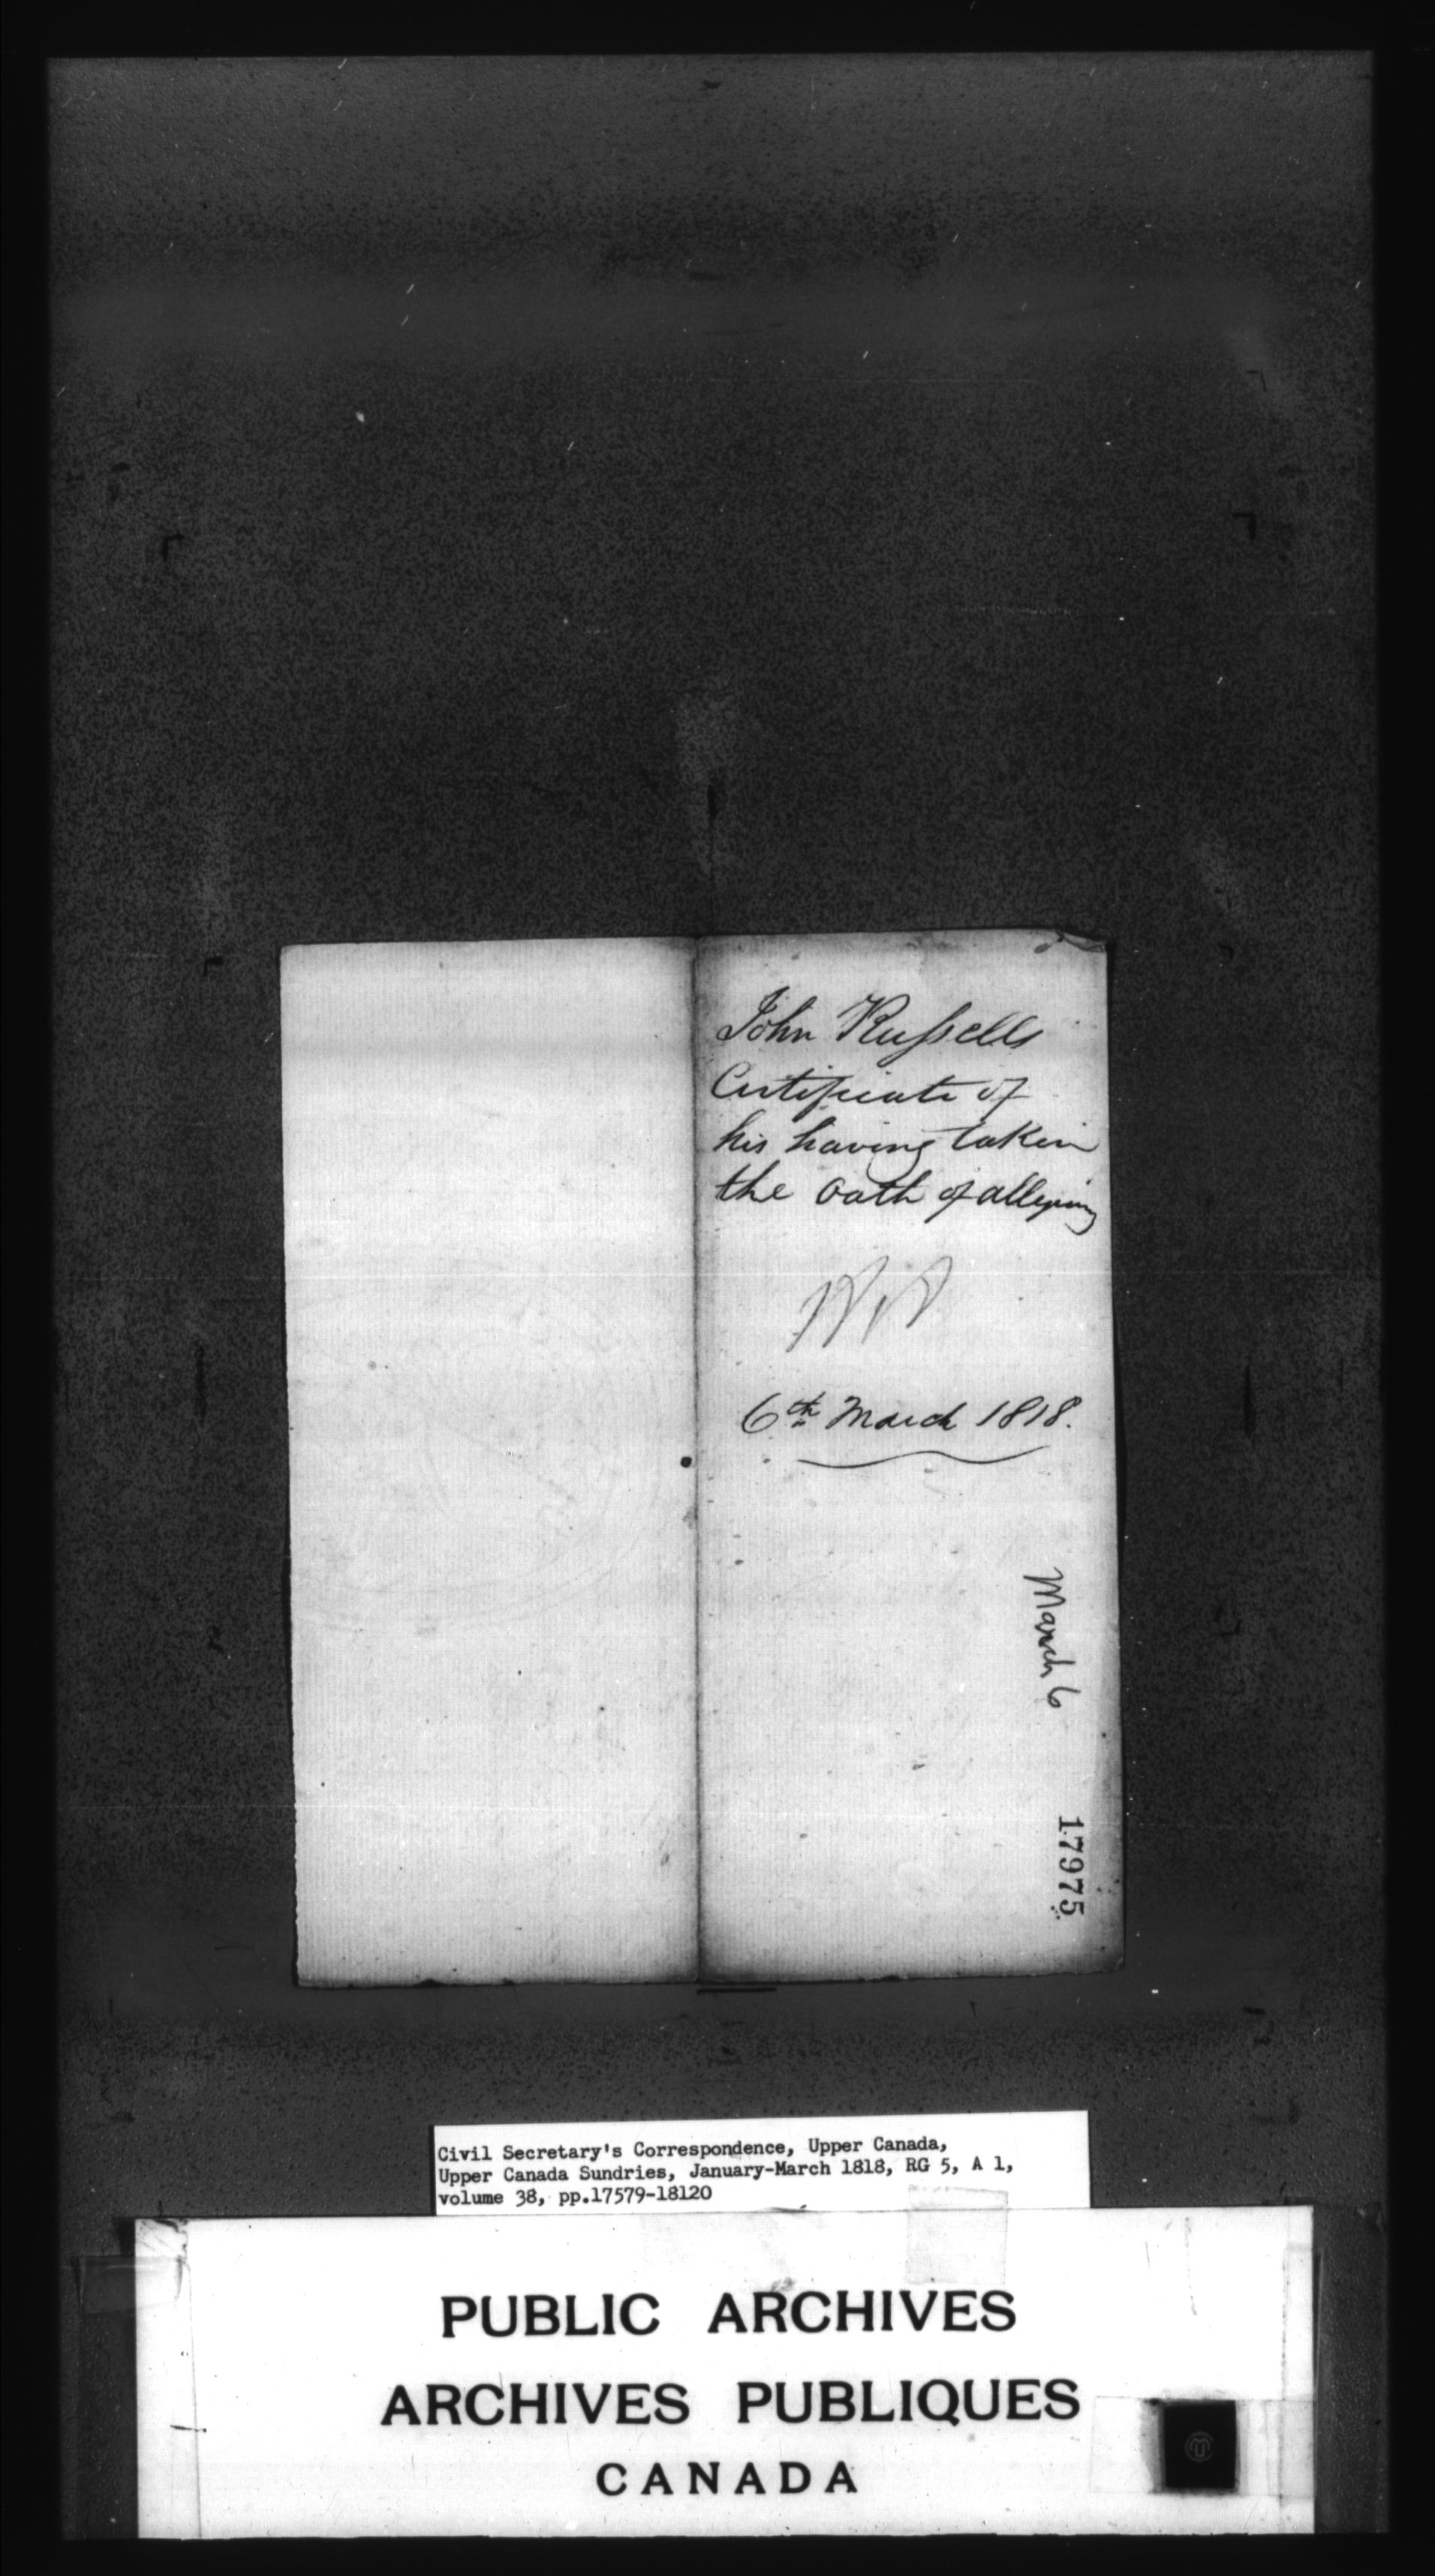 John Russells
Certificate of
his having taken
the Oath of
6th March 1818.
March 6
17975
Civil Secretary's Correspondence, Upper Canada,
Upper Canada Sundries, January-March 1818, RG 5, A 1,
volume 38, pp.17579-18120
PUBLIC ARCHIVES
ARCHIVES PUBLIQUES
CANADA